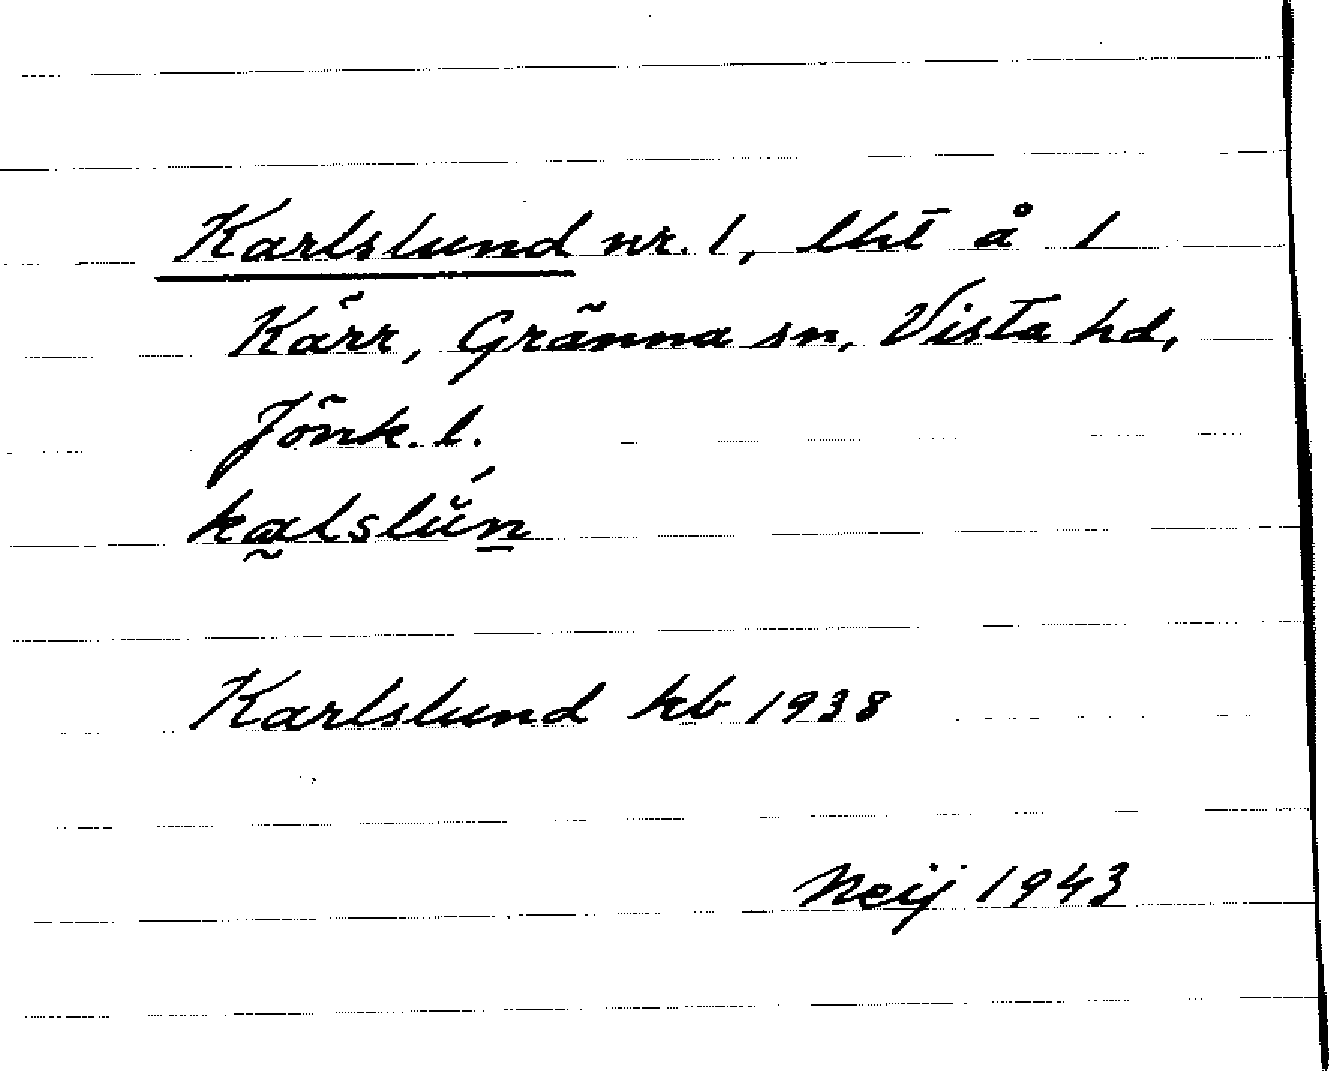 Karlslund nr. 1, lht å 1
Kärr, Gränna sn, Vista hd,
Jönk. l.
Karlslund kb 1938
Neij 1943